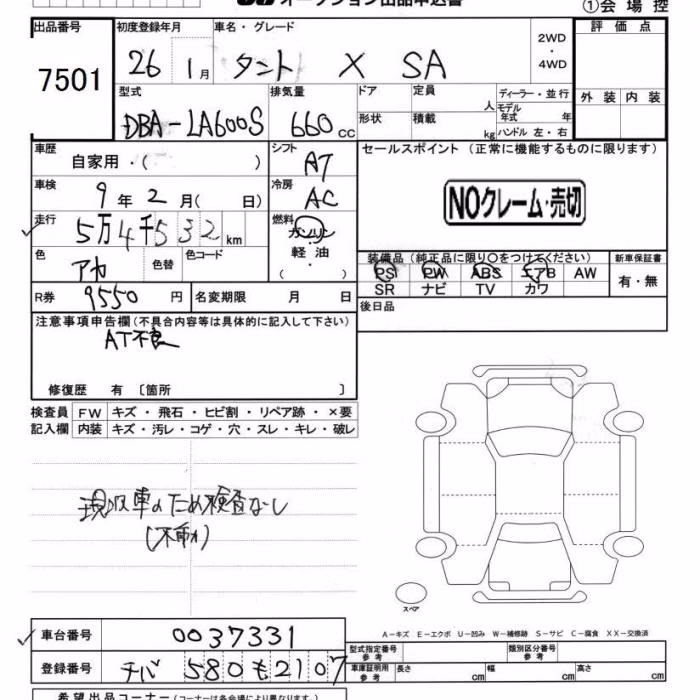 オークション出品申込書
①会場控
出品番号
7501
初度登録年月
26 1月
車名・グレード
タント X SA
2WD
・
4WD
評価点
外装 内装
型式
DBA-LA600S
排気量
660cc
ドア
形状
定員
人
積載
kg
ディーラー・並行
モデル年式
年
ハンドル 左・右
車歴
自家用・( )
シフト
AT
セールスポイント (正常に機能するものに限ります)
NOクレーム・売切
車検
9年2月( 日)
冷房
AC
走行
5万4千532km
燃料
ガソリン
軽油
( )
色
アカ
色替
色コード
装備品(純正品に限り○をつけてください)
PS PW ABS エアB AW
SR ナビ TV カワ
新車保証書
有・無
R券
9550円
名変期限 月 日
後日品
注意事項申告欄(不具合内容等は具体的に記入して下さい)
AT不良
修復歴 有〔箇所 〕
検査員記入欄
FW キズ・飛石・ヒビ割・リペア跡・×要
内装 キズ・汚レ・コゲ・穴・スレ・キレ・破レ
現状車のため検査なし
(不動)
スペア
A-キズ E-エクボ U-凹み W-補修跡 S-サビ C-腐食 XX-交換済
車台番号
0037331
登録番号
チバ 580 も 2107
型式指定番号
参考
類別区分番号
参考
車庫証明用
参考
長さ cm
幅 cm
高さ cm
希望出品コーナー(コーナーは各会場により異なります)